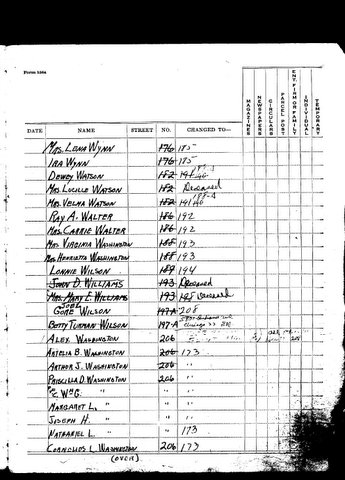 Form 1564
MAGAZINES
NEWSPAPERS
CIRCULARS
PARCEL POST
ENT. FIRM OR FAMILY
INDIVIDUAL
TEMPORARY
DATE NAME STREET NO. CHANGED TO—
Mrs. Lena Wynn 176 185
Ira Wynn 176 185
Dewey Watson 182
Mrs. Lucille Watson 182 Deceased
Mrs. Velma Watson 182
Ray A. Walter 186 192
Mrs. Carrie Walter 186 192
Mrs. Virginia Washington 188 193
Mrs. Henrietta Washington 188 193
Lonnie Wilson 189 194
John D. Williams 193 Deceased
Mrs. Mary E. Williams 193 198 Deceased
Gore Wilson 197-A 208
Betty Turman Wilson 197-A
Alex Washington 206
Artelia B. Washington 206 173
Arthur J. Washington 206
Priscilla D. Washington 206
" "
Margaret L. " "
Joseph H. " "
Nathaniel L. " " 173
Cornelius L. Washington 206 173
(OVER)